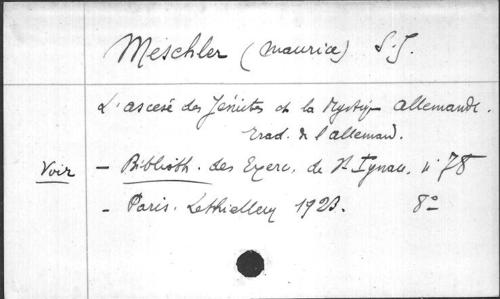 Meschler (Maurice) S.J.
L'ascèse des Jésuites et la Mystiq allemande.
trad. de l'allemand.
Voir - Biblioth. des Exerc. de St Ignace, n° 78
- Paris. Lethielleux 1923. 8°